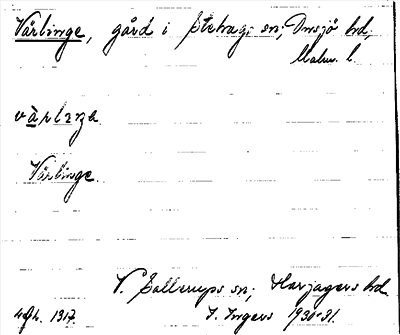 Värlinge, gård i Stehags sn; Onsjö hd,
Malm. l.
värlinge
Värlinge.
V. Sallerups sn; Harjagers hd
Afh. 1317. I. Ingers 1930-31.